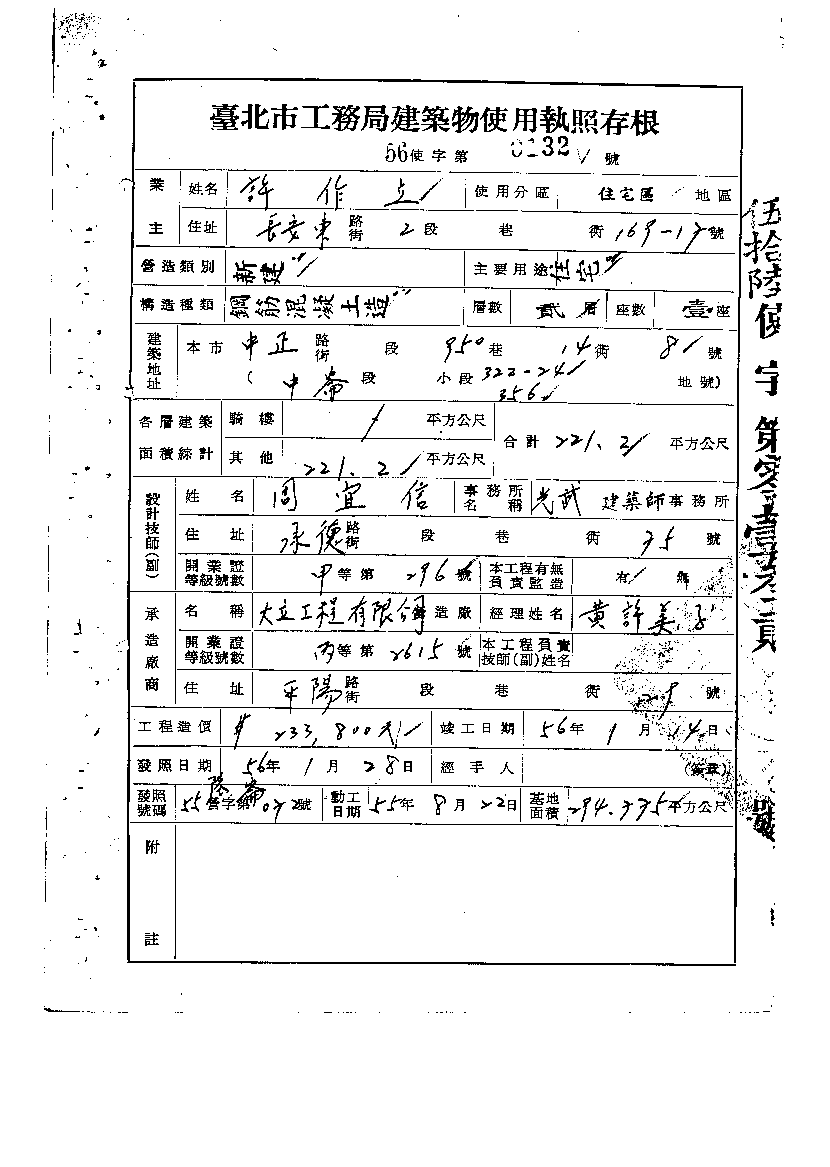 臺北市工務局建築物使用執照存根
56使字第 0132 號
業主 姓名 許作立 使用分區 住宅區 地區
住址 長安東路街 2段 巷 衖 169-17號
營造類別 新建 主要用途 住宅
構造種類 鋼筋混凝土造 層數 貳層 座數 壹座
建築地址 本市 中正路街 段 950巷 14衖 8號
(中崙段 小段 322-24 356 地號)
各層建築面積綜計 騎樓 / 平方公尺 合計 221.21 平方公尺
其他 221.21 平方公尺
設計技師(副) 姓名 周宜信 事務所名稱 光武 建築師事務所
住址 承德路街 段 巷 衖 35 號
開業證等級號數 甲等第 296 號 本工程有無負責監造 有 無
承造廠商 名稱 大立工程有限公司營造廠 經理姓名 黃許美
開業證等級號數 丙等第 2615 號 本工程負責技師(副)姓名
住址 平陽路街 段 巷 衖 29 號
工程造價 $ 233,800元 竣工日期 56年 1月 14日
發照日期 56年 1月 28日 經手人 (簽章)
發照號碼 55營字第 號 動工日期 55年 8月 22日 基地面積 294.335平方公尺
附註
伍拾陸使字第零壹參貳號